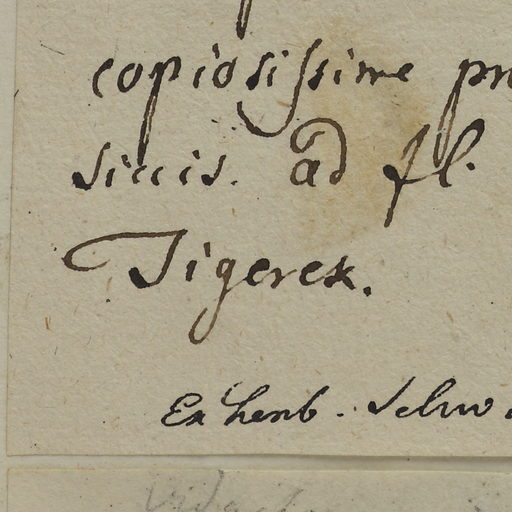 copiosissime pr
siccis. ad fl.
Tigerek.
Ex herb. Schw